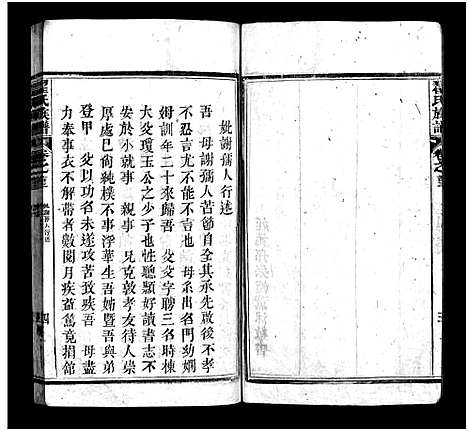 妣謝孺人行述
吾　母謝孺人苦節自全其承先啟後不孝
等不肖言尤不能不言也　母系出名門幼嫻
姆訓年二十來歸吾　父父字聘三名時棟
大父瓊玉公之少子也性聰穎好讀書志不
安於小就事　親事　兄克敦孝友待人崇
厚處已尚純樸不事浮華生吾姊暨吾與弟
登甲　父以功名未遂攻苦致疾吾　母盡
力奉事衣不解帶者數閱月疾益篤竟捐館
氏族譜
卷之首
謝孺人行述
四
氏族譜
卷之首